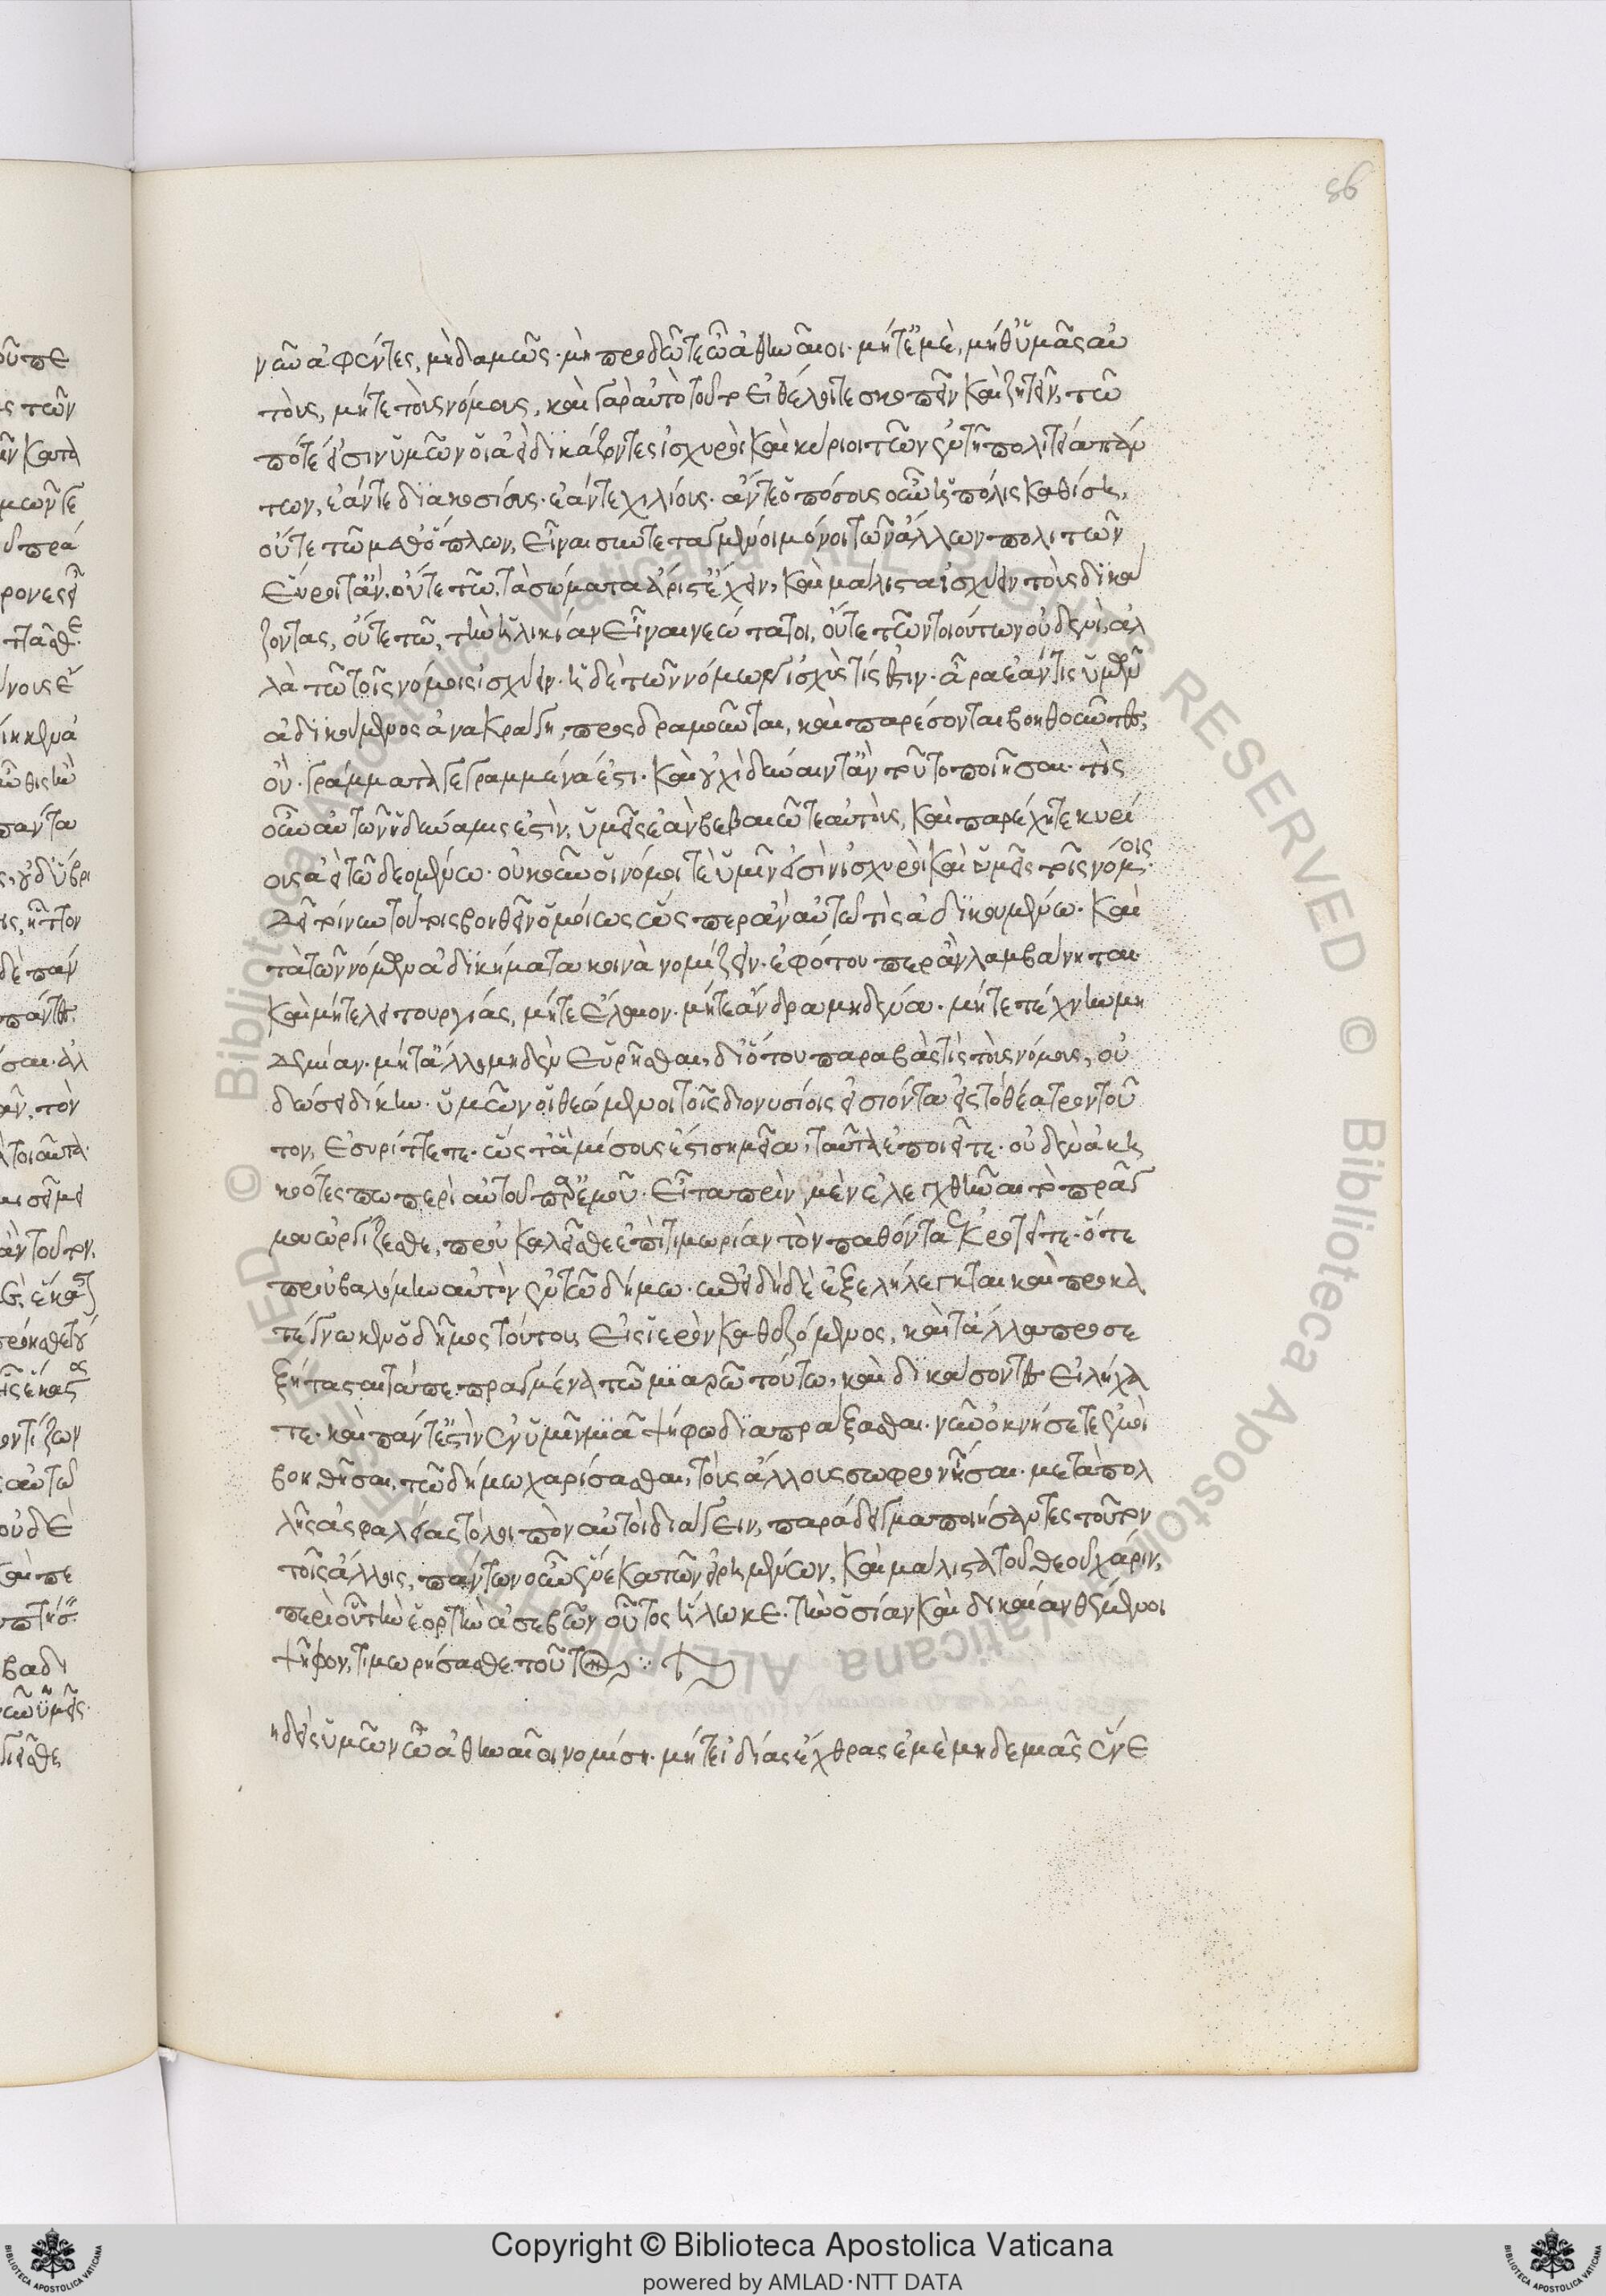 86
νῦν ἀφέντες, μηδαμῶς· μὴ προδῶτε ὦ ἄ ἀθηναῖοι· μήτε ἐμὲ, μήθ' ὑμᾶς αὐ
τοὺς, μήτε τοὺς νόμους, καὶ γὰρ αὐτὸ τοῦτο εἰ θέλοιτε σκοπεῖν καὶ ζητεῖν, τῶ
ποτέ εἰσιν ὑμῶν οἱ ἀεὶ δικάζοντες ἰσχυροὶ καὶ κύριοι τῶν ἐν τῆ πολιτεία πάν
των, ἐάν τε διακοσίους· ἐάν τε χιλίους· ἄν τε ὁπόσους οὖν ἡ πόλις καθίση,
οὔτε τῶ μεθ' ὅπλων, εἶναι συντεταγμένοι μόνοι τῶν ἄλλων πολιτῶν
εὕροιτ' ἄν. οὔτε τῶ, τὰ σώματα ἄριστ' ἔχειν, καὶ μάλιστα ἰσχύειν τοὺς δικά
ζοντας, οὔτε τῶ, τὴν ἡλικίαν εἶναι νεώτατοι, οὔτε τῶν τοιούτων οὐδενὶ, ἀλ
λὰ τῶ τοῖς νόμοις ἰσχύειν· ἡ δὲ τῶν νόμων ἰσχὺς τίς ἐστιν· ἆρα ἐάν τις ὑμῶν
ἀδικούμενος ἀνακράγη, προσδραμοῦνται, καὶ παρέσονται βοηθοῦντες,
οὐ· γράμματα γεγραμμένα ἐστι· καὶ οὐχὶ δύναιντ' ἂν τοῦτο ποιῆσαι· τίς
οὖν αὐτῶν ἡ δύναμις ἐστὶν, ὑμεῖς ἐὰν βεβαιῶτε αὐτοὺς, καὶ παρέχητε κυρί
ους ἀεὶ τῶ δεομένω· οὐκοῦν οἱ νόμοι τὲ ὑμῖν εἰσὶν ἰσχυροὶ καὶ ὑμεῖς τοῖς νόμοις·
δεῖ τοίνυν τούτοις βοηθεῖν ὁμοίως ὥσπερ ἂν αὑτῶ τὶς ἀδικουμένω· καὶ
τὰ τῶν νόμων ἀδικήματα κοινὰ νομίζειν· ἐφ' ὅτου περ ἂν λαμβάνηται·
καὶ μήτε λειτουργίας, μήτε ἔλεον· μήτε ἄνδρα μηδένα· μήτε τέχνην μη
δεμίαν· μήτ' ἄλλο μηδὲν εὑρῆσθαι, δι' ὅτου παραβάς τὶς τοὺς νόμους, οὐ
δώσει δίκην· ὑμῶν οἱ θεώμενοι τοῖς διονυσίοις εἰσιόντα εἰς τὸ θέατρον τοῦ
τον, ἐσυρίττετε· ὡς τἃ μίσους ἐστι σημεῖα, ταῦτα ἐποιεῖτε· οὐδὲν ἀκη
κοότες πω περὶ αὐτοῦ παρ' ἐμοῦ· εἶτα πρὶν μὲν ἐλεγχθῆναι τὸ πρᾶγ
μα ὠργίζεσθε, προὐκαλεῖσθε ἐπὶ τιμωρίαν τὸν παθόντα ἐκροτεῖτε· ὅτε
προὐβαλόμην αὐτὸν ἐν τῶ δήμω· ἐπειδὴ δὲ ἐξελήλεγκται καὶ προκα
τέγνωκεν ὁ δῆμος τούτου, εἰς ἱερὸν καθεζόμενος, καὶ τἄλλα προσε
ξήτασται τὰ πεπραγμένα τῶ μιαρῶ τούτω, καὶ δικάσοντες εἰλήχα
τε· καὶ πάντ' ἐστὶν ἐν ὑμῖν μιᾶ ψήφω διαπράξασθαι· νῦν ὀκνήσετε ἐμοὶ
βοηθῆσαι, τῶ δήμω χαρίσασθαι, τοὺς ἄλλους σωφρονῆσαι· μετὰ πολ
λῆς ἀσφαλείας τὸ λοιπὸν αὐτοὶ διάγειν, παράδειγμα ποιήσαντες τοῦτον
τοῖς ἄλλοις, πάντων οὖν ἕνεκα τῶν εἰρημένων, καὶ μάλιστα τοῦ θεοῦ χάριν,
περὶ οὗ τὴν ἑορτὴν ἀσεβῶν οὗτος ἥλωκε. τὴν ὁσίαν καὶ δικαίαν θέμενοι
ψῆφον, τιμωρήσασθε τοῦτον
ηδεὶς ὑμῶν ὦ ἄ ἀθηναῖοι νομίση· μήτε ἰδίας ἔχθρας ἐμὲ μηδεμιᾶς ἕνε
Copyright © Biblioteca Apostolica Vaticana
powered by AMLAD·NTT DATA